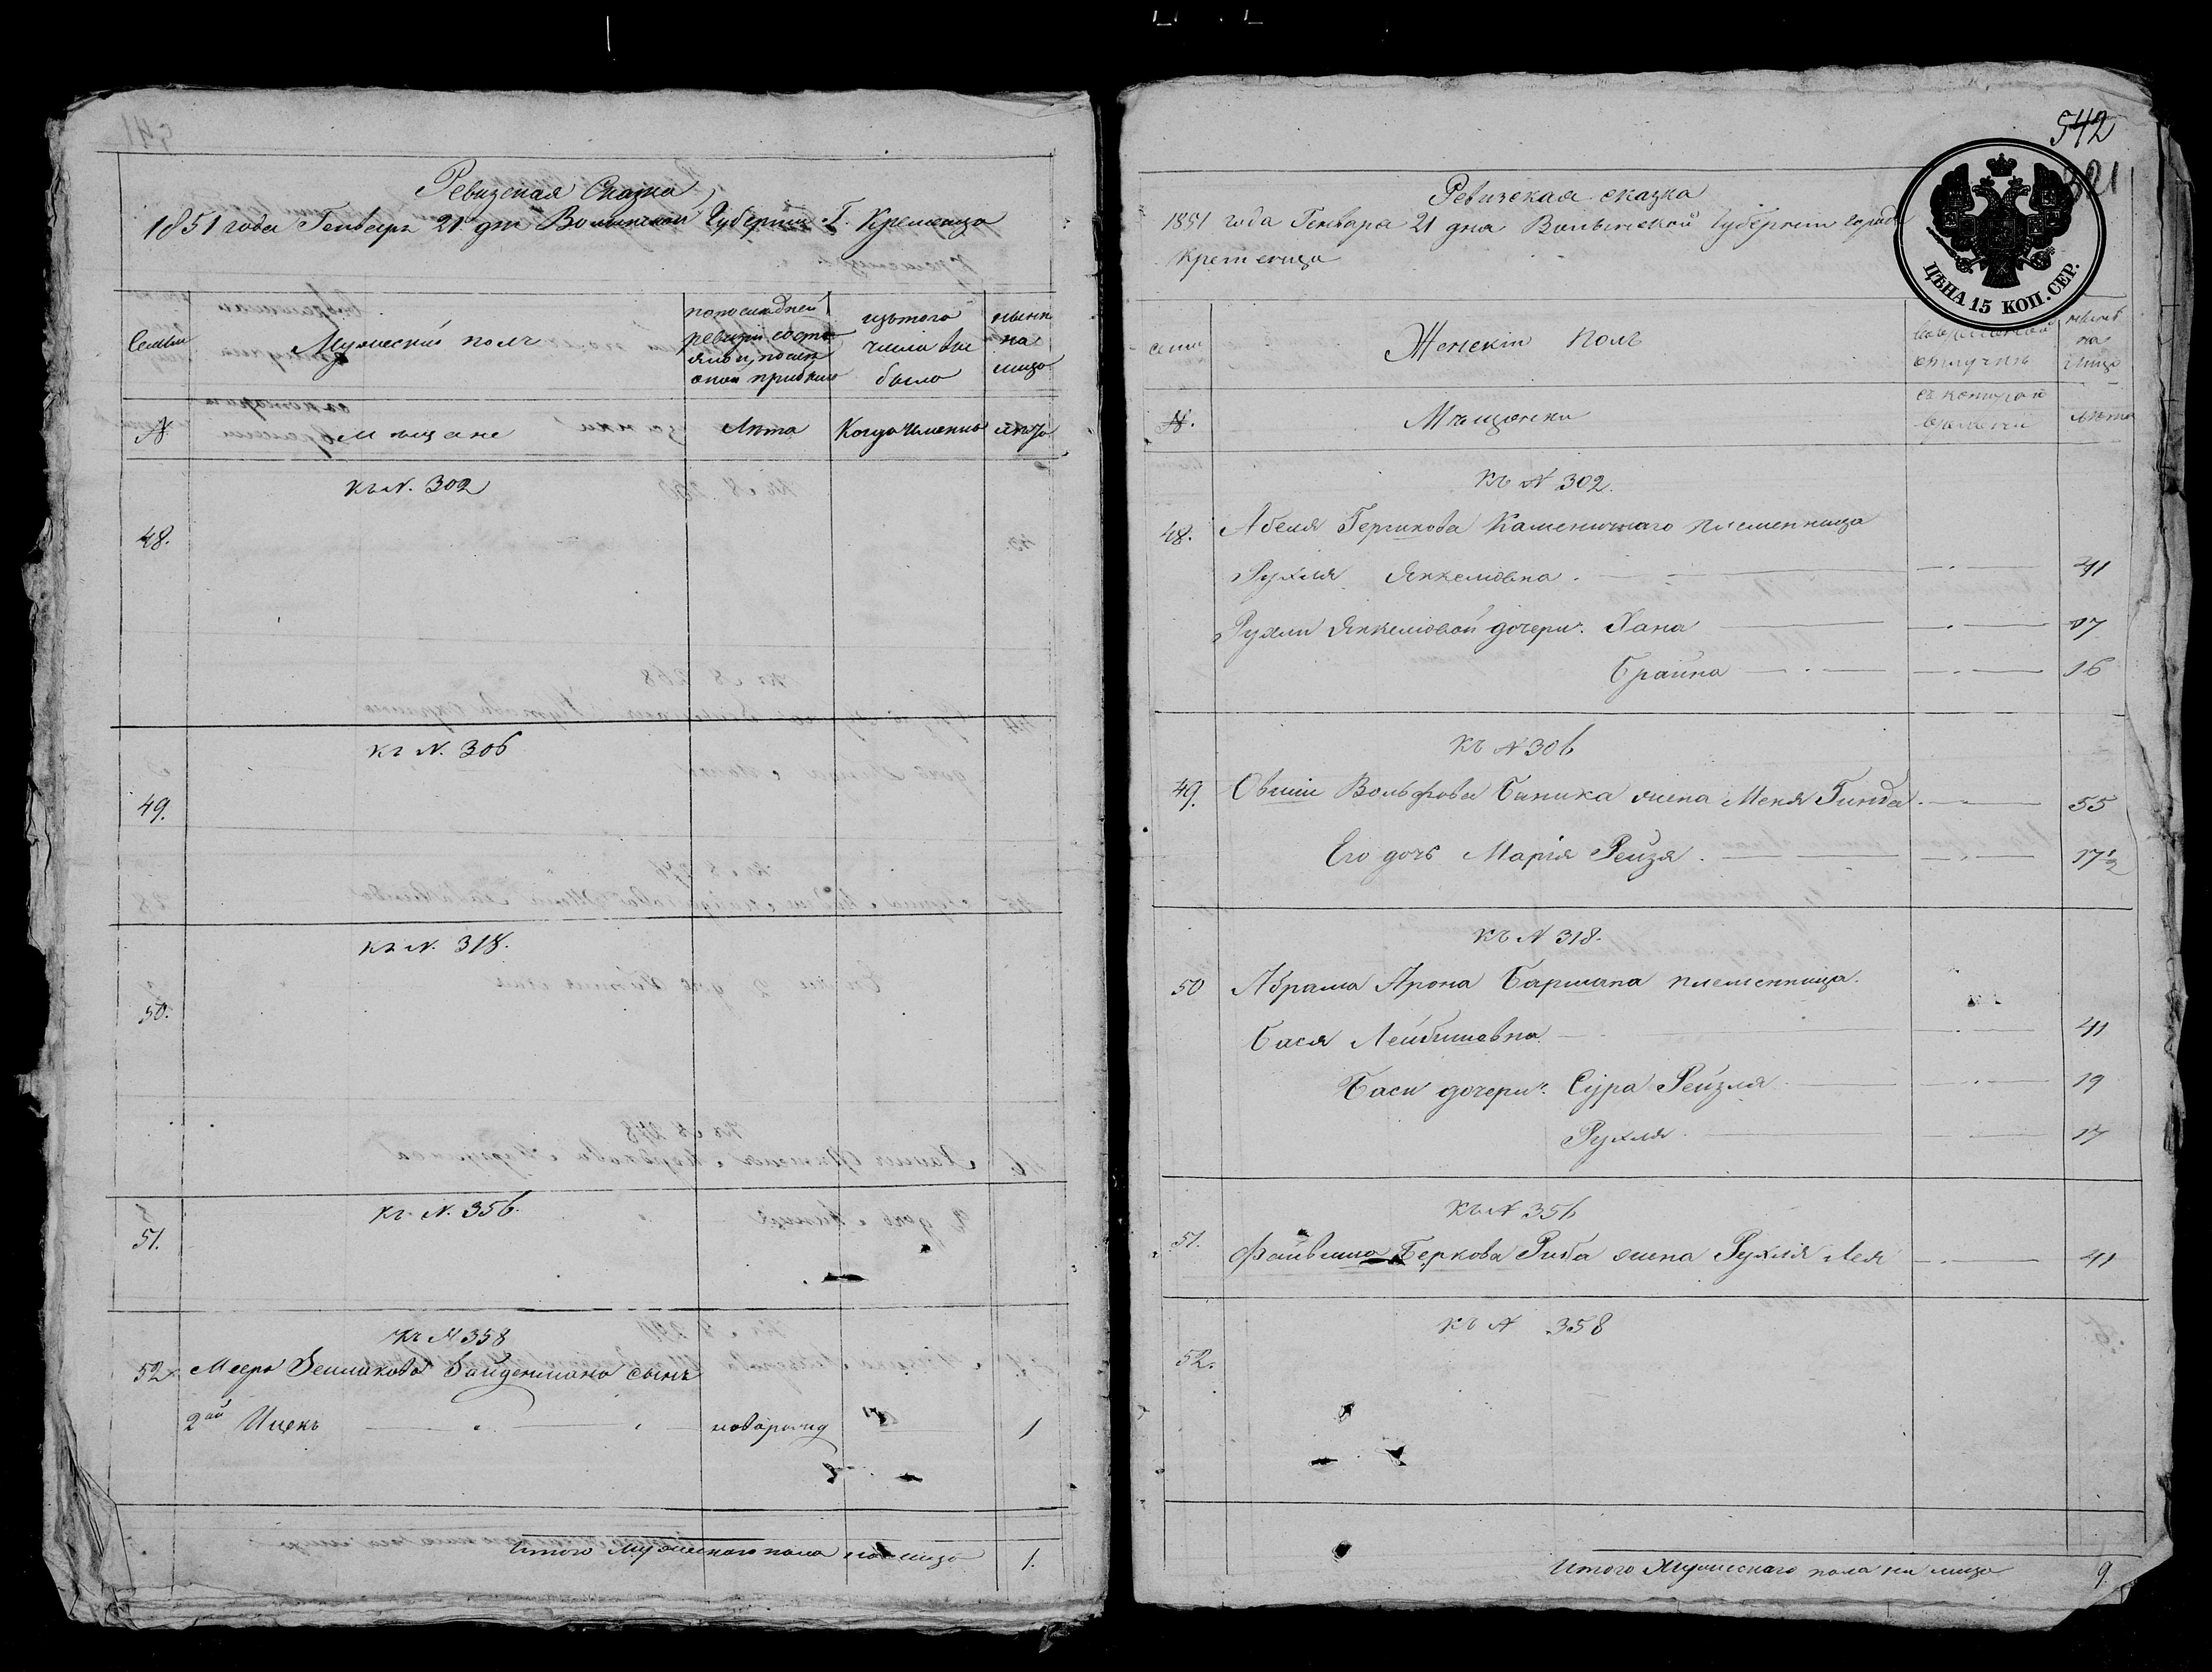 Ревизская Сказка
1851 года Генваря 21 дня Волынской Губернии Г. Кременца
Семьи
Мужеский полъ
по последней ревизіи состояло и после оной прибыло
изъ того числа выбыло
ныне на лицо
№
Мещане
Лета
Когда именно
Лета
къ №. 302
48.
къ №. 306
49.
къ №. 318.
50.
къ №. 356.
51.
къ № 358
52. Меера Зелмакова Байденмана сынъ
2ой Ицекъ новорожд 1
Итого мужескаго пола на лицо 1.
542
521
ЦѢНА 15 КОП. СЕР.
Ревизская сказка
1851 года Генваря 21 дня Волынской Губернии города
Кременца
семьи
Женскій Полъ
во временной отлучке
ныне на лицо
№.
Мещанки
съ котораго времени
лета
къ № 302.
48. Абеля Гершкова Каменичнаго племенница
Рухля Янкелювна. 41
Рухли Янкелювой дочери: Хана 17
Брайна 16
къ № 306
49. Овшіи Вольфова Баника жена Меня Гинда. 55
Его дочь Марія Рейзя. 17 1/2
къ № 318.
50 Абрама Арона Бармана племенница.
Бася Лейбишовна. 41
Баси дочери: Сура Рейзля 19
Рухля. 17
къ № 356
51. Файвиша Беркова Риба жена Рухля Лея 41
къ № 358
52.
Итого Мужескаго пола на лицо 9.